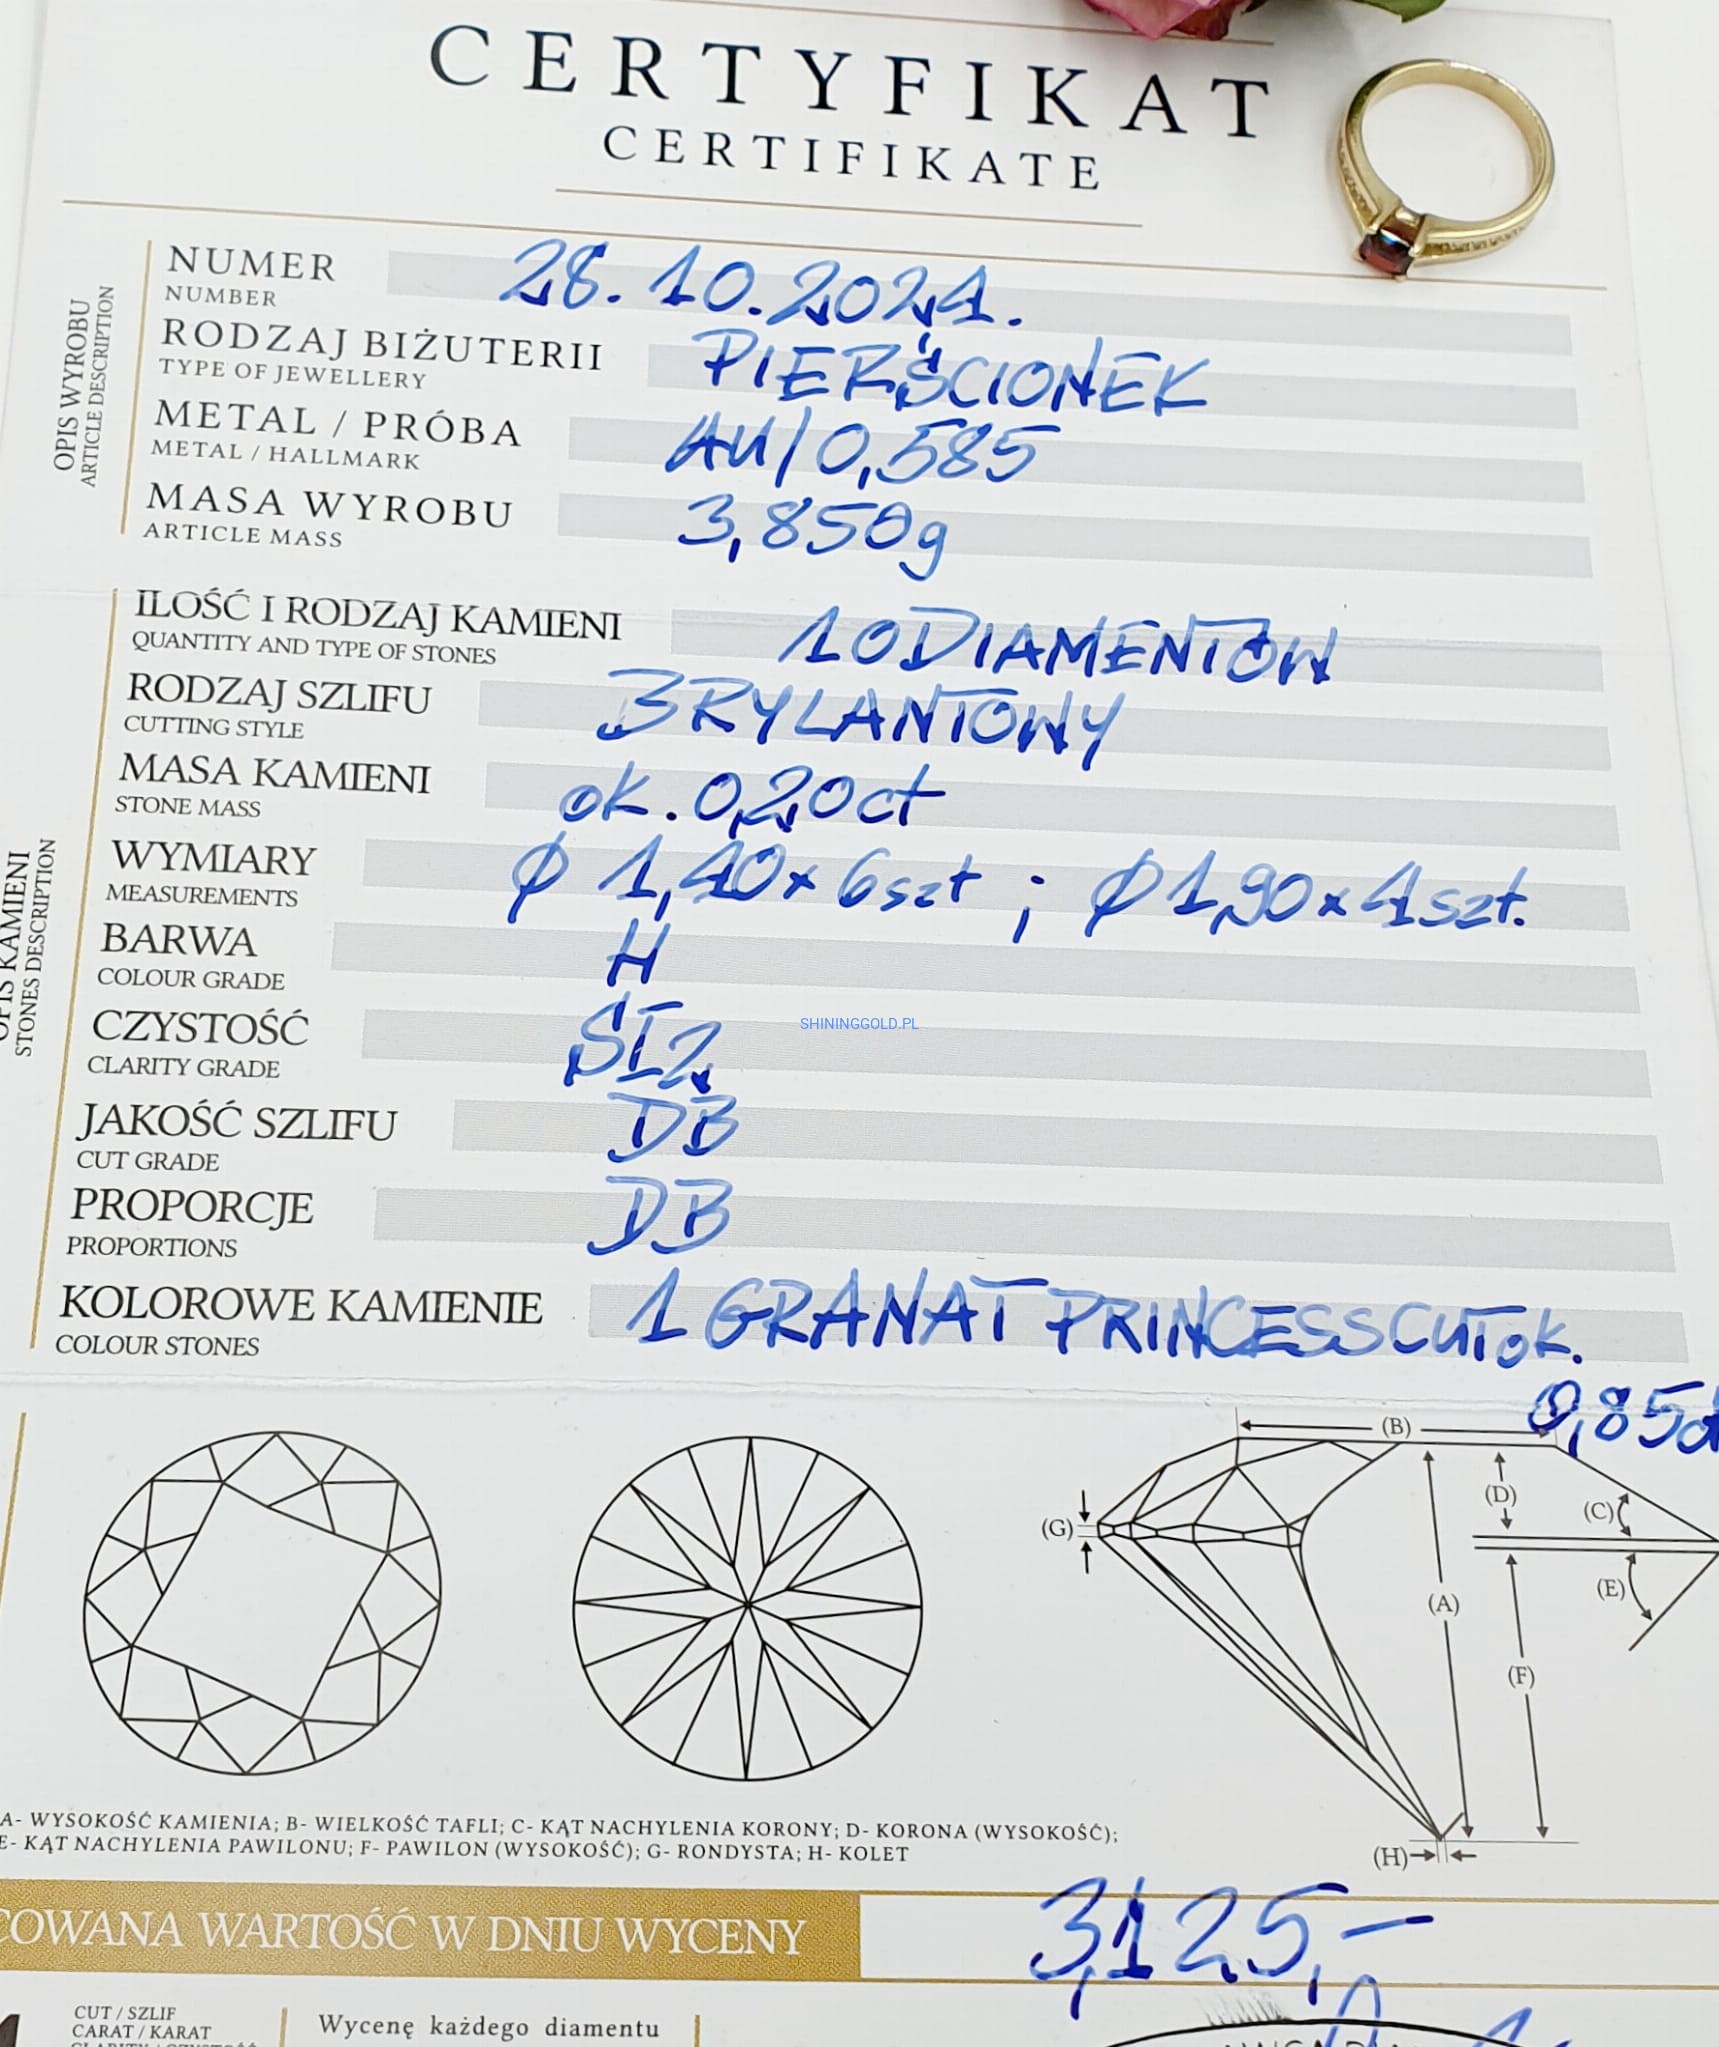 CERTYFIKAT
CERTIFIKATE
OPIS WYROBU
ARTICLE DESCRIPTION
NUMER 28.10.2024.
NUMBER
RODZAJ BIŻUTERII PIERŚCIONEK
TYPE OF JEWELLERY
METAL / PRÓBA AU/0,585
METAL / HALLMARK
MASA WYROBU 3,850g
ARTICLE MASS
OPIS KAMIENI
STONES DESCRIPTION
ILOŚĆ I RODZAJ KAMIENI 10 DIAMENTOW
QUANTITY AND TYPE OF STONES
RODZAJ SZLIFU BRYLANTOWY
CUTTING STYLE
MASA KAMIENI ok. 0,20ct
STONE MASS
WYMIARY ϕ 1,40x 6szt ; ϕ 1,90x 4szt.
MEASUREMENTS
BARWA H
COLOUR GRADE
CZYSTOŚĆ SI2
CLARITY GRADE
SHININGGOLD.PL
JAKOŚĆ SZLIFU DB
CUT GRADE
PROPORCJE DB
PROPORTIONS
KOLOROWE KAMIENIE 1 GRANAT PRINCESS CUT ok.
COLOUR STONES
0,85ct
(B)
(D)
(C)
(G)
(E)
(A)
(F)
(H)
A- WYSOKOŚĆ KAMIENIA; B- WIELKOŚĆ TAFLI; C- KĄT NACHYLENIA KORONY; D- KORONA (WYSOKOŚĆ);
E- KĄT NACHYLENIA PAWILONU; F- PAWILON (WYSOKOŚĆ); G- RONDYSTA; H- KOLET
COWANA WARTOŚĆ W DNIU WYCENY 3,125,-
CUT / SZLIF
CARAT / KARAT
Wycenę każdego diamentu